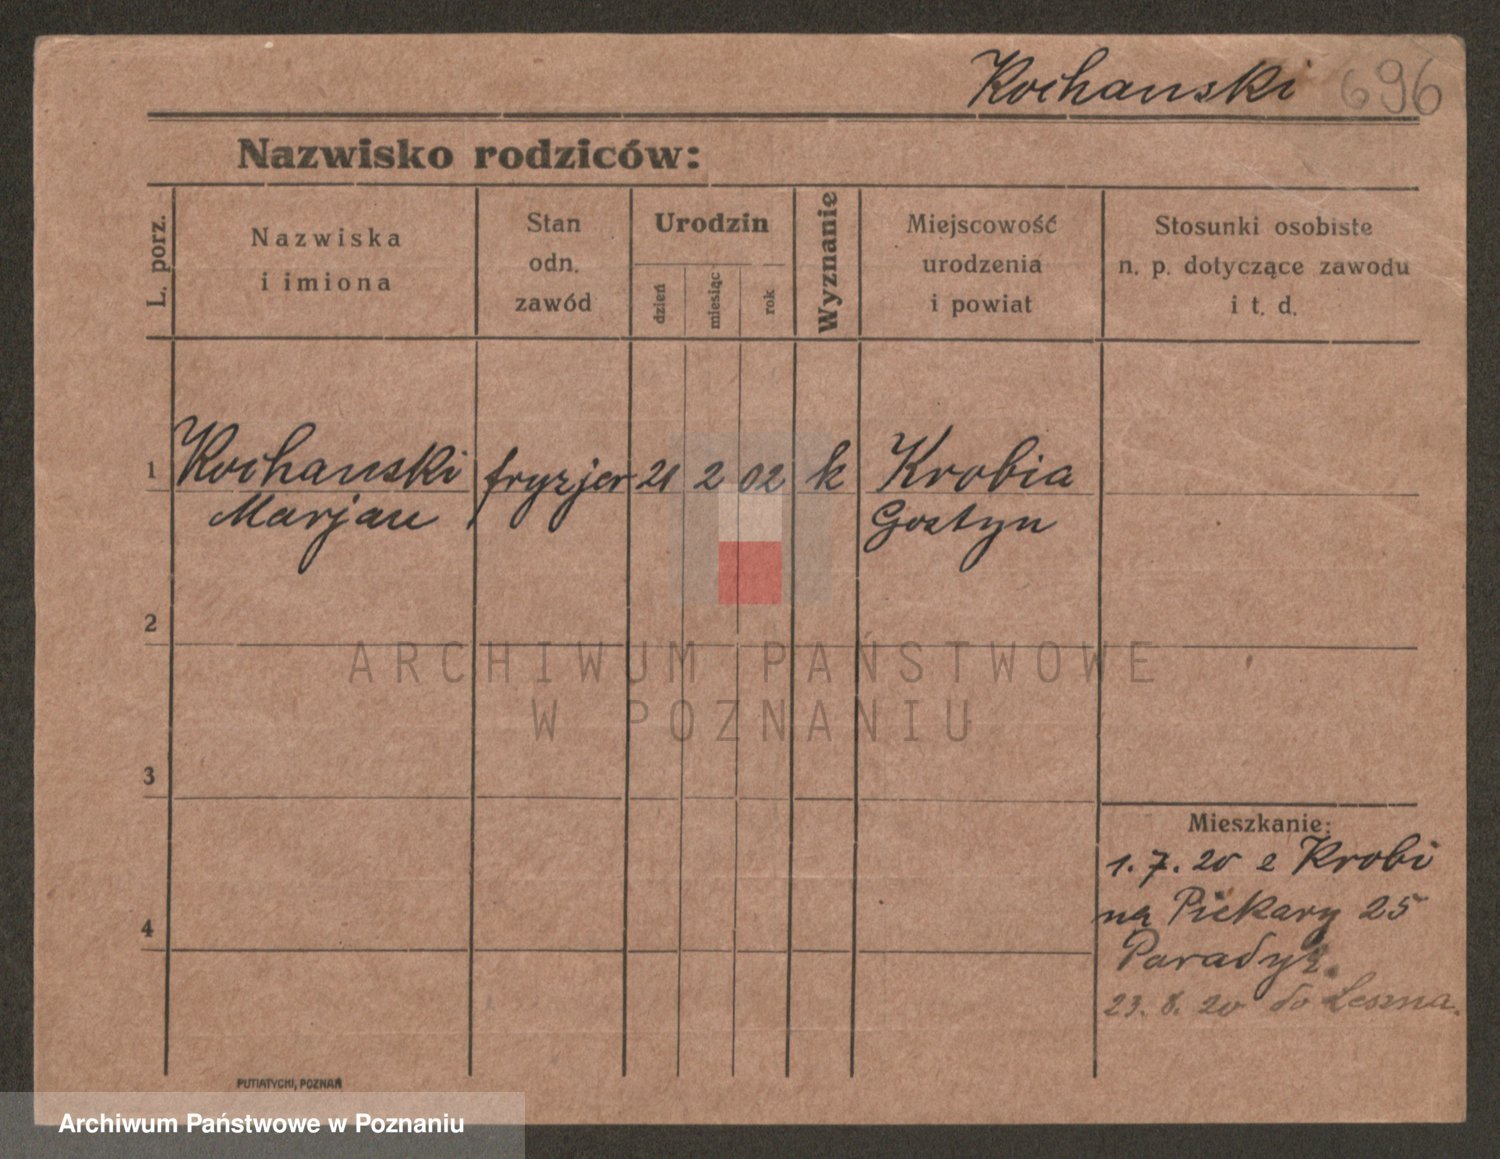 Kochanski 696
Nazwisko rodziców:
L. porz.
Nazwiska
i imiona
Stan
odn.
zawód
Urodzin
dzień
miesiąc
rok
Wyznanie
Miejscowość
urodzenia
i powiat
Stosunki osobiste
n. p. dotyczące zawodu
i t. d.
1 Kochanski fryzjer 21 2 02 k Krobia
Marjan Gostyn
2
ARCHIWUM PAŃSTWOWE
W POZNANIU
3
Mieszkanie:
1. 7. 20 z Krobi
na Piekary 25
4
Paradyz
23. 8. 20 do Leszna.
PUTIATYCKI, POZNAŃ
Archiwum Państwowe w Poznaniu